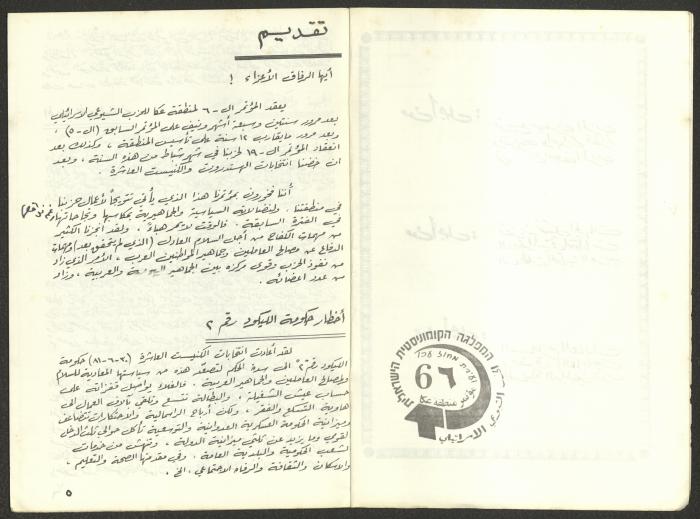 تقديم
أيها الرفاق الأعزاء !
يعقد المؤتمر ال-٦ لمنطقة عكا للحزب الشيوعي الاسرائيلي
بعد مرور سنتين وسبعة أشهر ونيف على المؤتمر السابق (ال-٥) ،
وبعد مرور ما يقارب ١٢ سنة على تأسيس المنطقة ، وكذلك بعد
انعقاد المؤتمر ال-١٩ لحزبنا في شهر شباط من هذه السنة ، وبعد
ان خضنا انتخابات الهستدروت والكنيست العاشرة .
أننا فخورون بمؤتمرنا هذا الذي يأتي تتويجاً لأعمال حزبنا
في منطقتنا . ولنضالاته السياسية والجماهيرية بمكاسبها ونجاحاتها
في الفترة السابقة . فالوقت لا يمر هباءً . ولقد أنجزنا الكثير
من مهمات الكفاح من أجل السلام العادل (الذي لم يتحقق بعد) ومهمات
الدفاع عن مصالح العاملين وجماهير المواطنين العرب ، الأمر الذي زاد
من نفوذ الحزب وقوى مركزه بين الجماهير اليهودية والعربية ، وزاد
من عدد اعضائه .
أخطار حكومة الليكود رقم ٢
لقد أعادت انتخابات الكنيست العاشرة (٣٠-٦-٨١) حكومة
الليكود رقم ٢ الى سدة الحكم لتصعد هذه من سياستها المعادية للسلام
ولمصالح العاملين والجماهير العربية . فالغلاء يواصل قفزاته على
حساب عيش الشغيلة ، والبطالة تتسع وتلقي بآلاف العمال الى
هاوية التسكع والفقر ، ولكن أرباح الرأسمالية والاحتكارات تتضاعف
وميزانية الحكومة العسكرية العدوانية والتوسعية تأكل حوالي ثلث الدخل
القومي وما يزيد عن ثلثي ميزانية الدولة ، وتنهش من خدمات
الشعب الحكومية والبلدية العامة . وفي مقدمتها الصحة والتعليم ،
والاسكان والثقافة والرفاه الاجتماعي ، الخ .
٥
המפלגה הקומוניסטית הישראלית
ועידת מחוז עכו
6 ٦
مؤتمر منطقة عكا
الشيوعي الاسرائيلي